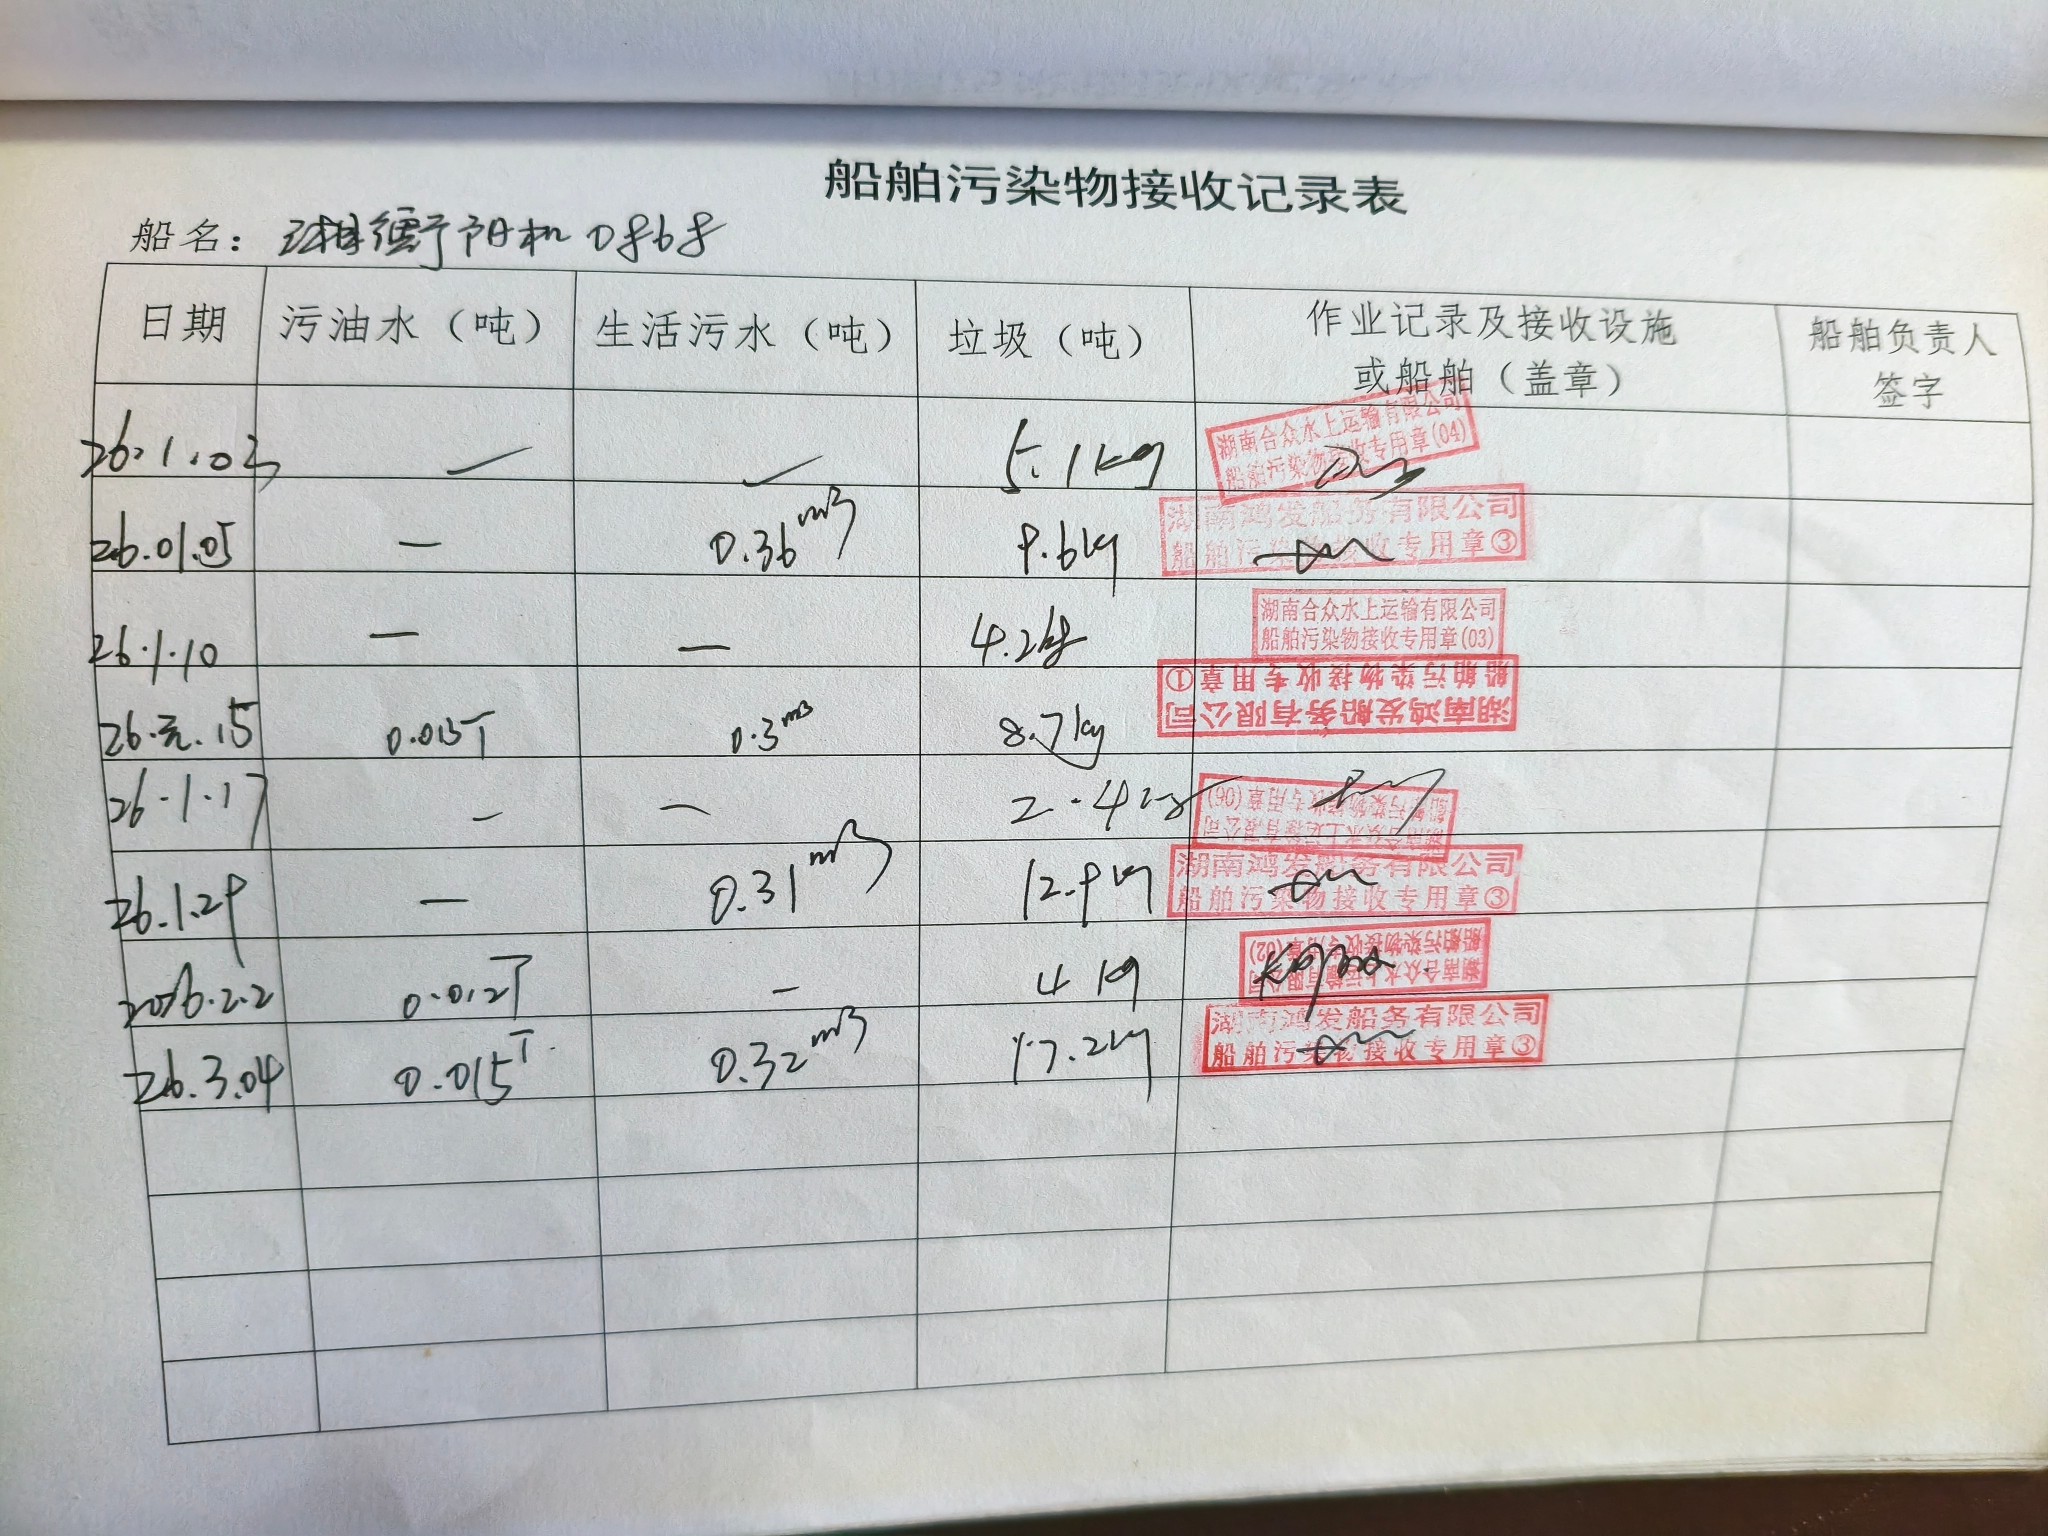 船舶污染物接收记录表
船名：湘衡阳机0868
日期 污油水（吨） 生活污水（吨） 垃圾（吨） 作业记录及接收设施或船舶（盖章） 船舶负责人签字
26.1.03 — — 5.1kg 湖南合众水上运输有限公司 船舶污染物接收专用章(04)
26.01.05 — 0.36m3 9.6kg 湖南鸿发船务有限公司 船舶污染物接收专用章③
26.1.10 — — 4.2kg 湖南合众水上运输有限公司 船舶污染物接收专用章(03)
26.元.15 0.015T 0.3m3 8.7kg 湖南鸿发船务有限公司 船舶污染物接收专用章①
26.1.17 — — 2.4kg 湖南合众水上运输有限公司 船舶污染物接收专用章(06)
26.1.29 — 0.31m3 12.9kg 湖南鸿发船务有限公司 船舶污染物接收专用章③
2026.2.2 0.012T — 4kg 湖南合众水上运输有限公司 船舶污染物接收专用章(02)
26.3.04 0.015T 0.32m3 17.2kg 湖南鸿发船务有限公司 船舶污染物接收专用章③